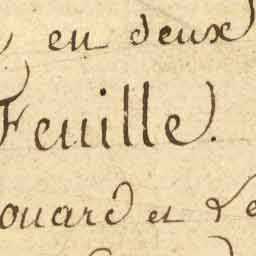 en deux
Feuille.
ouard et Le